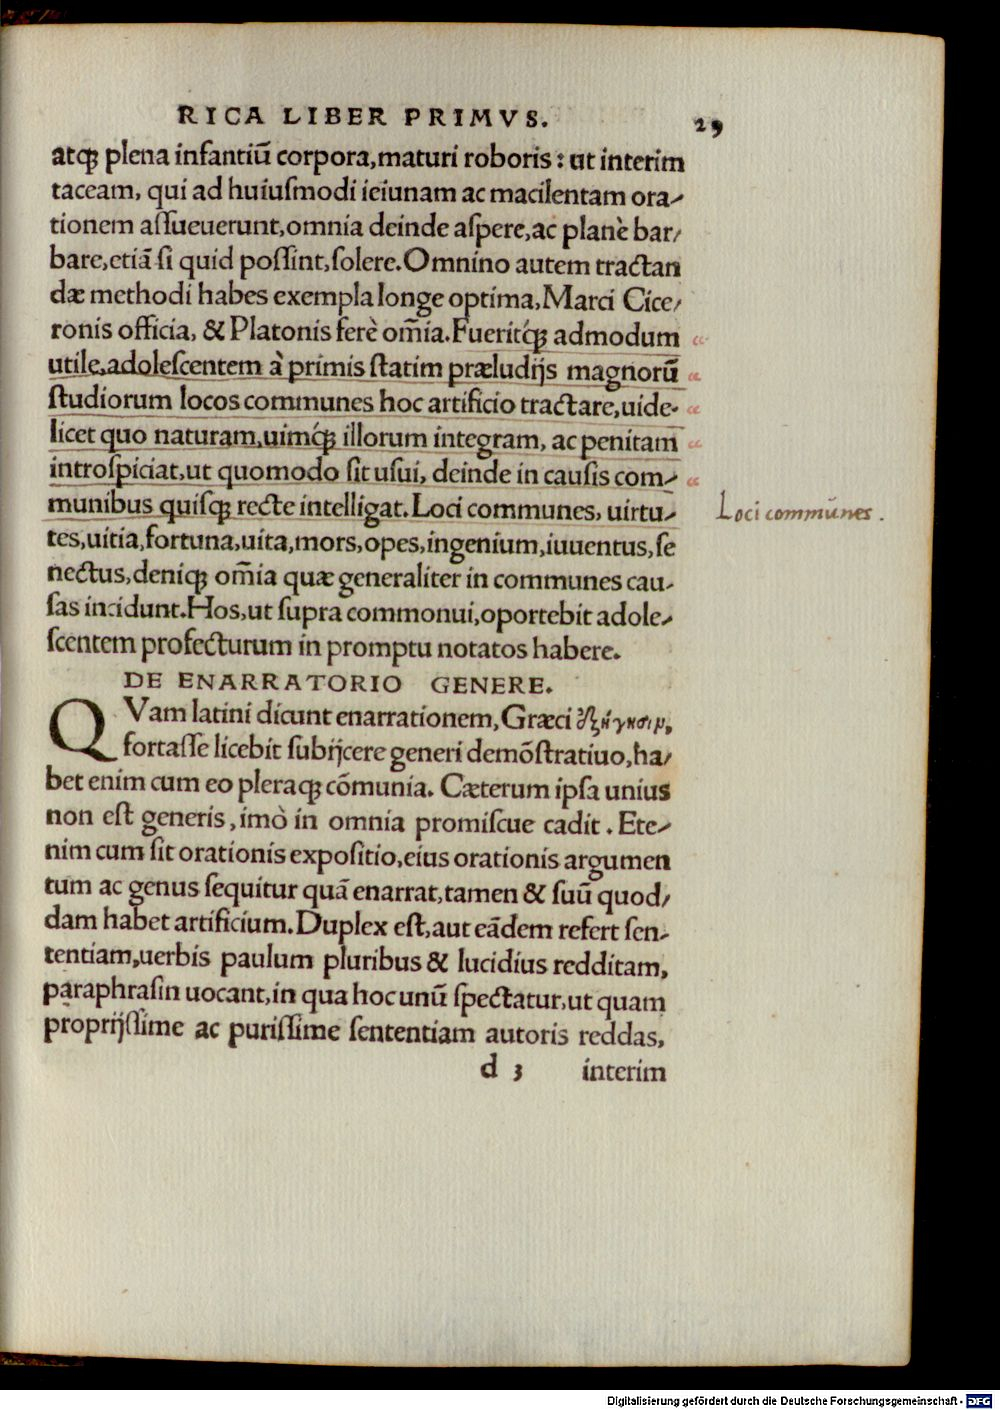 RICA LIBER PRIMVS. 29
atqꝫ plena infantiū corpora,maturi roboris: ut interim
taceam, qui ad huiuſmodi ieiunam ac macilentam ora-
tionem aſſueuerunt,omnia deinde aſpere,ac planè bar-
bare,etiā ſi quid poſſint,ſolere.Omnino autem tractan
dæ methodi habes exempla longe optima,Marci Cice-
ronis officia, & Platonis ferè om̄ia.Fueritq́ꝫ admodum
utile,adoleſcentem à primis ſtatim præludijs magnorū
ſtudiorum locos communes hoc artificio tractare,uide-
licet quo naturam,uimq́ꝫ illorum integram, ac penitam
introſpiciat,ut quomodo ſit uſui, deinde in cauſis com-
munibus quiſqꝫ recte intelligat.Loci communes, uirtu-
Loci commūnes.
tes,uitia,fortuna,uita,mors,opes,ingenium,iuuentus,ſe
nectus,deniqꝫ om̄ia quæ generaliter in communes cau-
ſas incidunt.Hos,ut ſupra commonui,oportebit adole-
ſcentem profecturum in promptu notatos habere.
DE ENARRATORIO GENERE.
QVam latini dicunt enarrationem,Græci ἐξήγησιμ,
fortaſſe licebit ſubijcere generi demōſtratiuo,ha-
bet enim cum eo pleraqꝫ cōmunia. Cæterum ipſa unius
non eſt generis, imò in omnia promiſcue cadit. Ete-
nim cum ſit orationis expoſitio,eius orationis argumen
tum ac genus ſequitur quā enarrat,tamen & ſuū quod-
dam habet artificium.Duplex eſt,aut eādem refert ſen-
tentiam,uerbis paulum pluribus & lucidius redditam,
paraphraſin uocant,in qua hoc unū ſpectatur,ut quam
proprijſſime ac puriſſime ſententiam autoris reddas,
d 3 interim
Digitalisierung gefördert durch die Deutsche Forschungsgemeinschaft - DFG